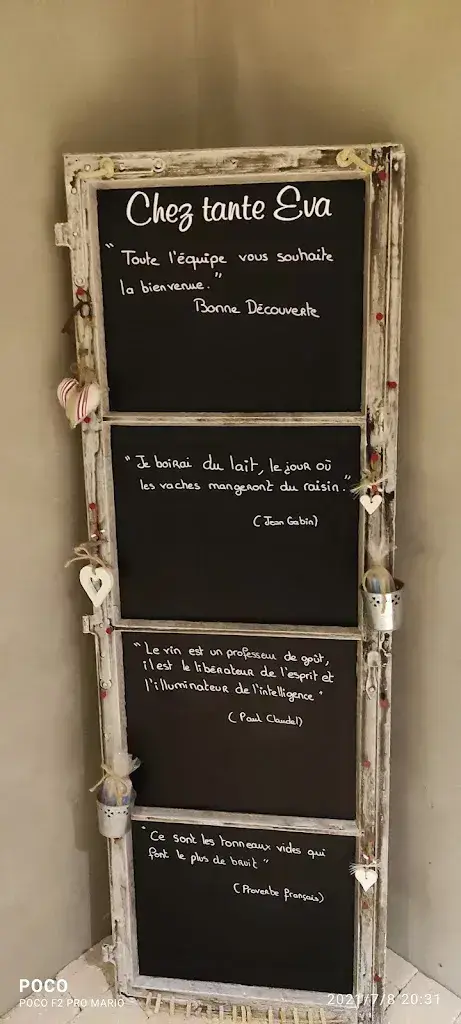 Chez tante Eva
"Toute l'équipe vous souhaite
la bienvenue."
Bonne Découverte
"Je boirai du lait, le jour où
les vaches mangeront du raisin."
(Jean Gabin)
"Le vin est un professeur de goût,
il est le libérateur de l'esprit et
l'illuminateur de l'intelligence"
(Paul Claudel)
"Ce sont les tonneaux vides qui
font le plus de bruit"
(Proverbe français)
POCO
POCO F2 PRO MARIO
2021/7/8 20:31